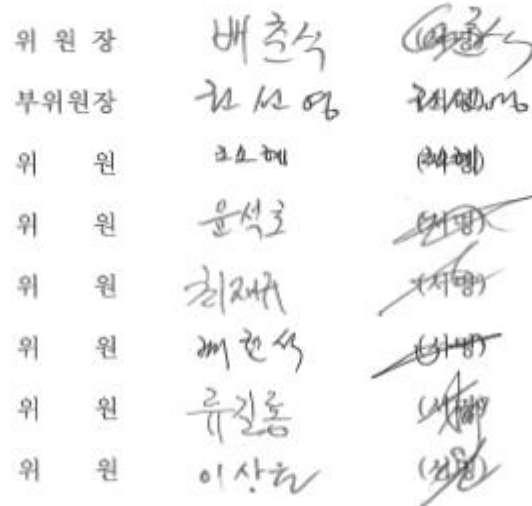 위 원 장 배춘식
부위원장 권선영 (서명)
위 원 조소혜 (서명)
위 원 윤석호 (서명)
위 원 최재규 (서명)
위 원 배헌석 (서명)
위 원 류길롱 (서명)
위 원 이상훈 (서명)